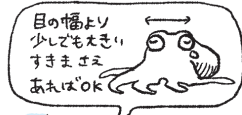 目の幅より
少しでも大きい
すきまさえ
あればOK